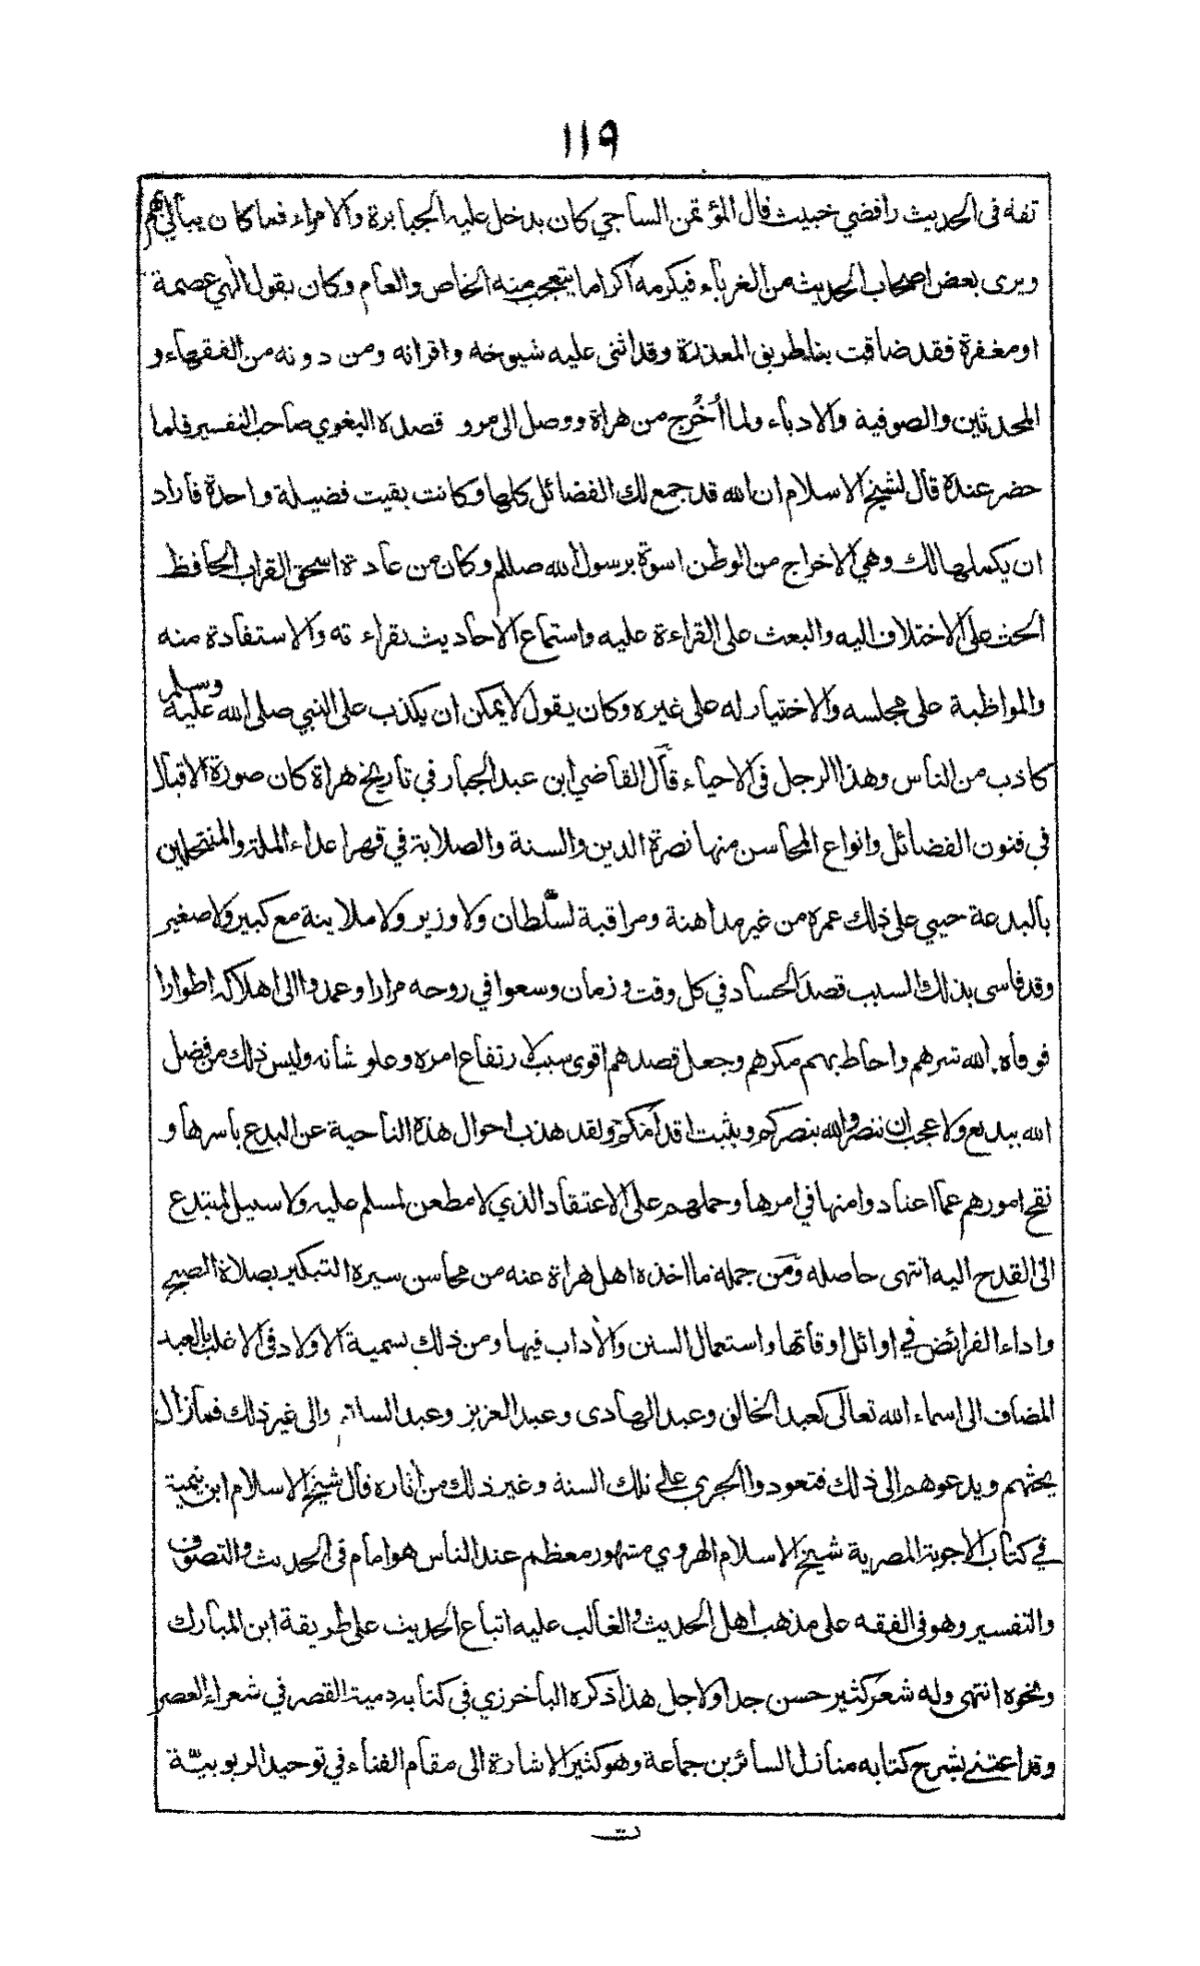 ١١٩
ثقة فى الحديث رافضي خبيث قال المؤتمن الساجي كان يدخل عليه الجبابرة والامراء فما كان يبالي بهم
ويرى بعض اصحاب الحديث من الغرباء فيكرمه اكراما يتعجب منه الخاص والعام وكان يقول الهي عصمة
او مغفرة فقد ضاقت بنا طريق المعذرة وقد اثنى عليه شيوخه واقرانه ومن دونه من الفقهاء و
المحدثين والصوفية والادباء ولما أُخرج من هراة ووصل الى مرو قصده البغوي صاحب التفسير فلما
حضر عنده قال لشيخ الاسلام ان الله قد جمع لك الفضائل كلها وكانت بقيت فضيلة واحدة فاراد
ان يكملها لك وهي الاخراج من الوطن اسوة برسول الله صللم وكان من عادة اسحق القراب الحافظ
الحث على الاختلاف اليه والبعث على القراءة عليه واستماع الاحاديث بقراءته والاستفادة منه
والمواظبة على مجلسه والاختيار له على غيره وكان يقول لا يمكن ان يكذب على النبي صلى الله عليه وسلم
كاذب من الناس وهذا الرجل فى الاحياء قال القاضي ابن عبد الجبار في تاريخ هراة كان صورة الاقبال
في فنون الفضائل وانواع المحاسن منها نصرة الدين والسنة والصلابة في قهر اعداء الملة والمنتحلين
بالبدعة حيي على ذلك عمره من غير مداهنة ومراقبة لسلطان ولا وزير ولا ملاينة مع كبير ولا صغير
وقد قاسى بذلك السبب قصد الحساد في كل وقت وزمان وسعوا في روحه مرارا وعمدوا الى اهلاكه اطوارا
فوقاه الله شرهم واحاط بهم مكرهم وجعل قصدهم اقوى سبب لارتفاع امره وعلو شأنه وليس ذلك من فضل
الله ببديع ولا عجب ان تنصروا الله ينصركم ويثبت اقدامكم ولقد هذب احوال هذه الناحية عن البدع باسرها و
نقح امورهم عما اعتادوا منها في امرها وحملهم على الاعتقاد الذي لا مطعن لمسلم عليه ولا سبيل لمبتدع
الى القدح اليه انتهى حاصله ومن جملة ما اخذه اهل هراة عنه من محاسن سيره التبكير بصلاة الصبح
واداء الفرائض في اوائل اوقاتها واستعمال السنن والأداب فيها ومن ذلك تسمية الاولاد فى الاغلب بالعبد
المضاف الى اسماء الله تعالى كعبد الخالق وعبد الهادى وعبد العزيز وعبد السلام والى غير ذلك فما زال
يحثهم ويدعوهم الى ذلك فتعودوا الجري على تلك السنة وغير ذلك من أثاره قال شيخ الاسلام ابن تيمية
في كتاب الاجوبة المصرية شيخ الاسلام الهروي مشهور معظم عند الناس هو امام فى الحديث والتصوف
والتفسير وهو فى الفقه على مذهب اهل الحديث والغالب عليه اتباع الحديث على طريقة ابن المبارك
ونحوه انتهى وله شعر كثير حسن جدا ولاجل هذا ذكره الباخرزي في كتابه دمية القصر في شعراء العصر
وقد اعتنى بشرح كتابه منازل السائرين جماعة وهو كثير الاشارة الى مقام الفناء في توحيد الربوبيّة